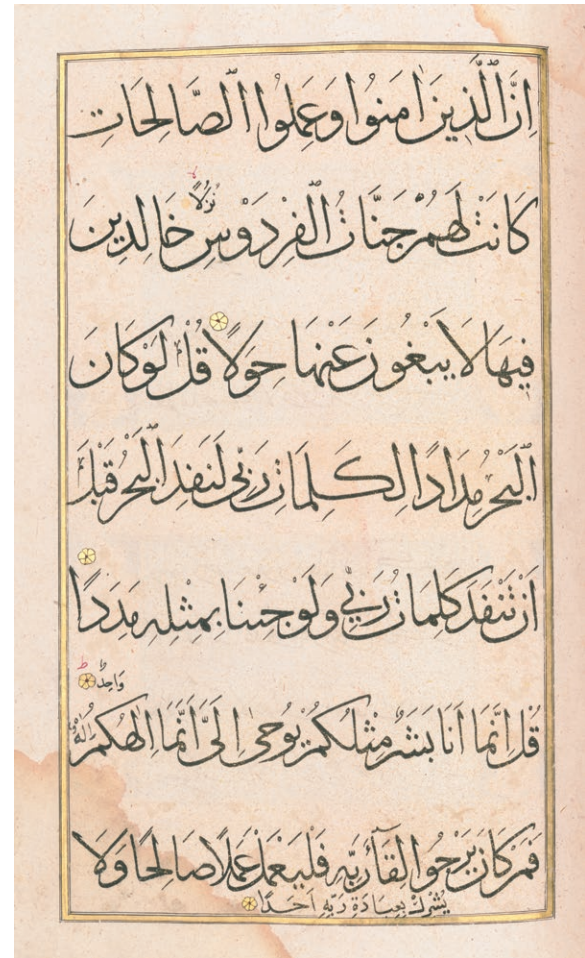 اِنَّ الَّذِينَ اٰمَنُوا وَعَمِلُوا الصَّالِحَاتِ
كَانَتْ لَهُمْ جَنَّاتُ الْفِرْدَوْسِ نُزُلًا خَالِدِينَ
فِيهَا لَا يَبْغُونَ عَنْهَا حِوَلًا قُلْ لَوْ كَانَ
الْبَحْرُ مِدَادًا لِكَلِمَاتِ رَبِّي لَنَفِدَ الْبَحْرُ قَبْلَ
اَنْ تَنْفَدَ كَلِمَاتُ رَبِّي وَلَوْ جِئْنَا بِمِثْلِهِ مَدَدًا
قُلْ اِنَّمَا اَنَا بَشَرٌ مِثْلُكُمْ يُوحٰى اِلَيَّ اَنَّمَا اِلٰهُكُمْ اِلٰهٌ وَاحِدٌ
فَمَنْ كَانَ يَرْجُوا لِقَاءَ رَبِّهِ فَلْيَعْمَلْ عَمَلًا صَالِحًا وَلَا
يُشْرِكْ بِعِبَادَةِ رَبِّهِ اَحَدًا